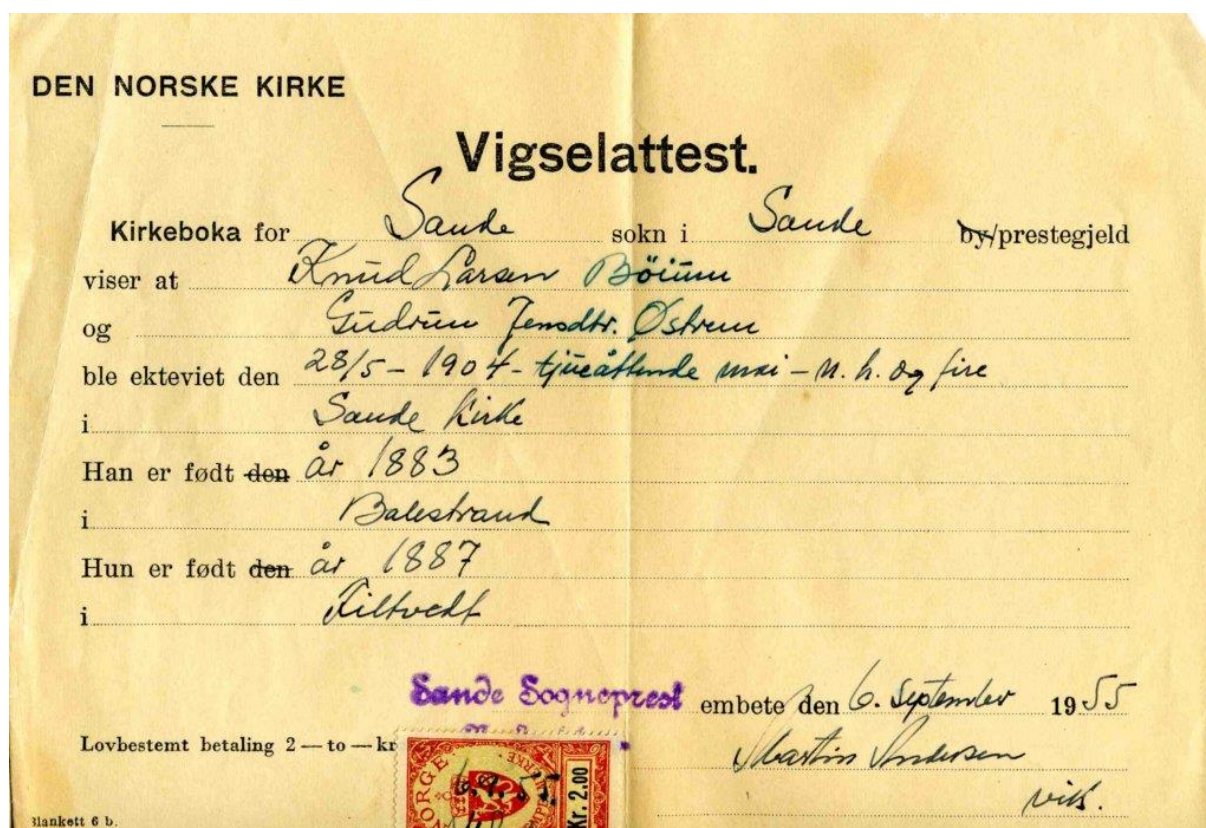 DEN NORSKE KIRKE
Vigselattest.
Kirkeboka for Sande sokn i Sande by/prestegjeld
viser at Knud Larsen Böium
og Gudrun Jensdtr. Østrem
ble ekteviet den 28/5 - 1904 - tjueåttende mai - n. h. og fire
i Sande Kirke
Han er født den år 1883
i Balestrand
Hun er født den år 1887
i Filtvedt
Sande Sogneprest embete den 6. September 1955
Lovbestemt betaling 2 — to — kr
Martin Andersen
vik.
NORGE
6.9.55.
Kr. 2.00
Blankett 6 b.